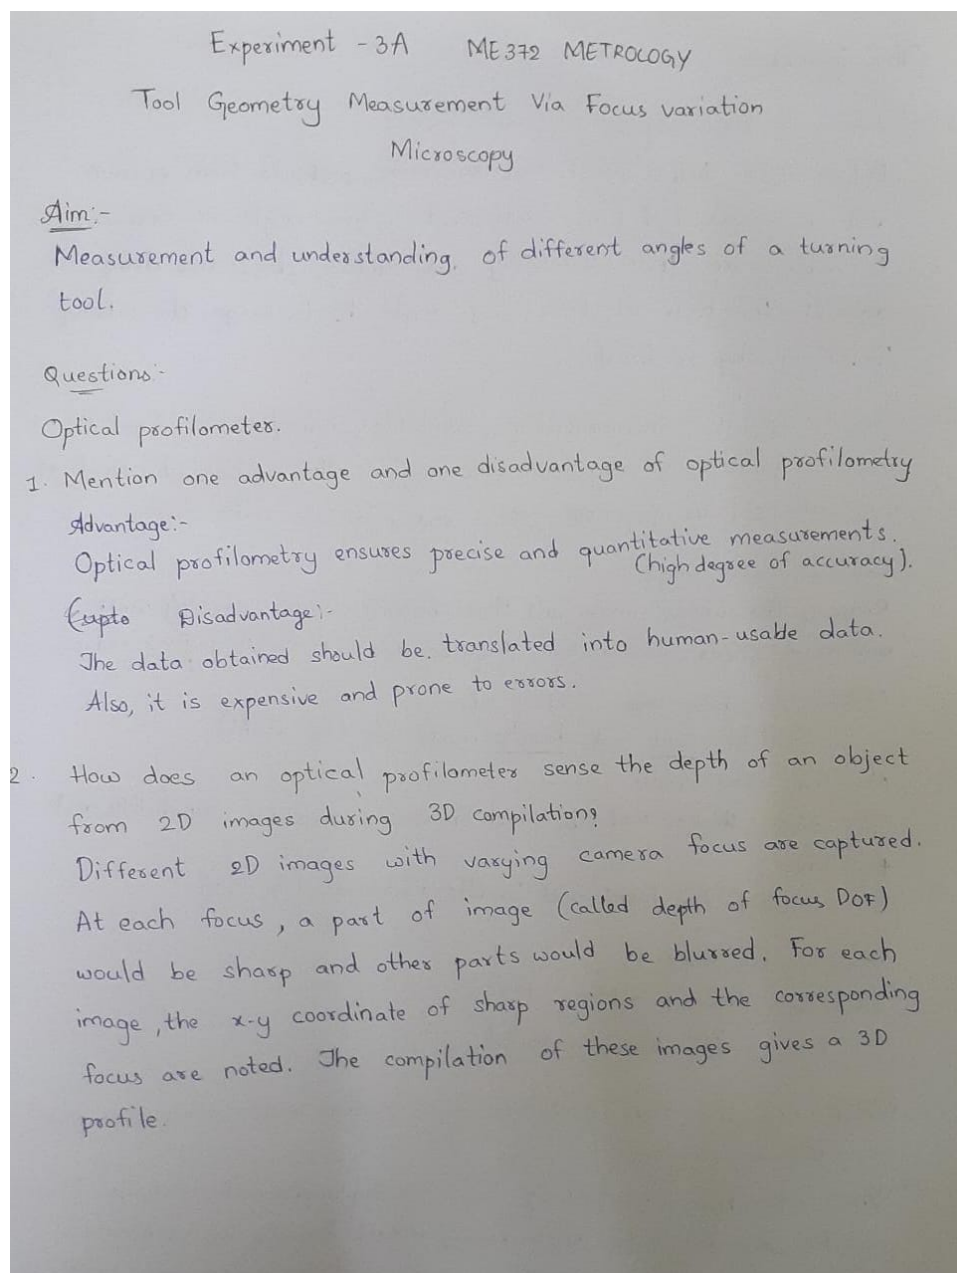 Experiment - 3A ME 372 METROLOGY
Tool Geometry Measurement Via Focus variation
Microscopy
Aim:-
Measurement and understanding of different angles of a turning
tool.
Questions:-
Optical profilometer.
1. Mention one advantage and one disadvantage of optical profilometry
Advantage:-
Optical profilometry ensures precise and quantitative measurements.
(high degree of accuracy).
(upto Disadvantage:-
The data obtained should be translated into human-usable data.
Also, it is expensive and prone to errors.
2. How does an optical profilometer sense the depth of an object
from 2D images during 3D compilation?
Different 2D images with varying camera focus are captured.
At each focus, a part of image (called depth of focus DOF)
would be sharp and other parts would be blurred. For each
image, the x-y coordinate of sharp regions and the corresponding
focus are noted. The compilation of these images gives a 3D
profile.